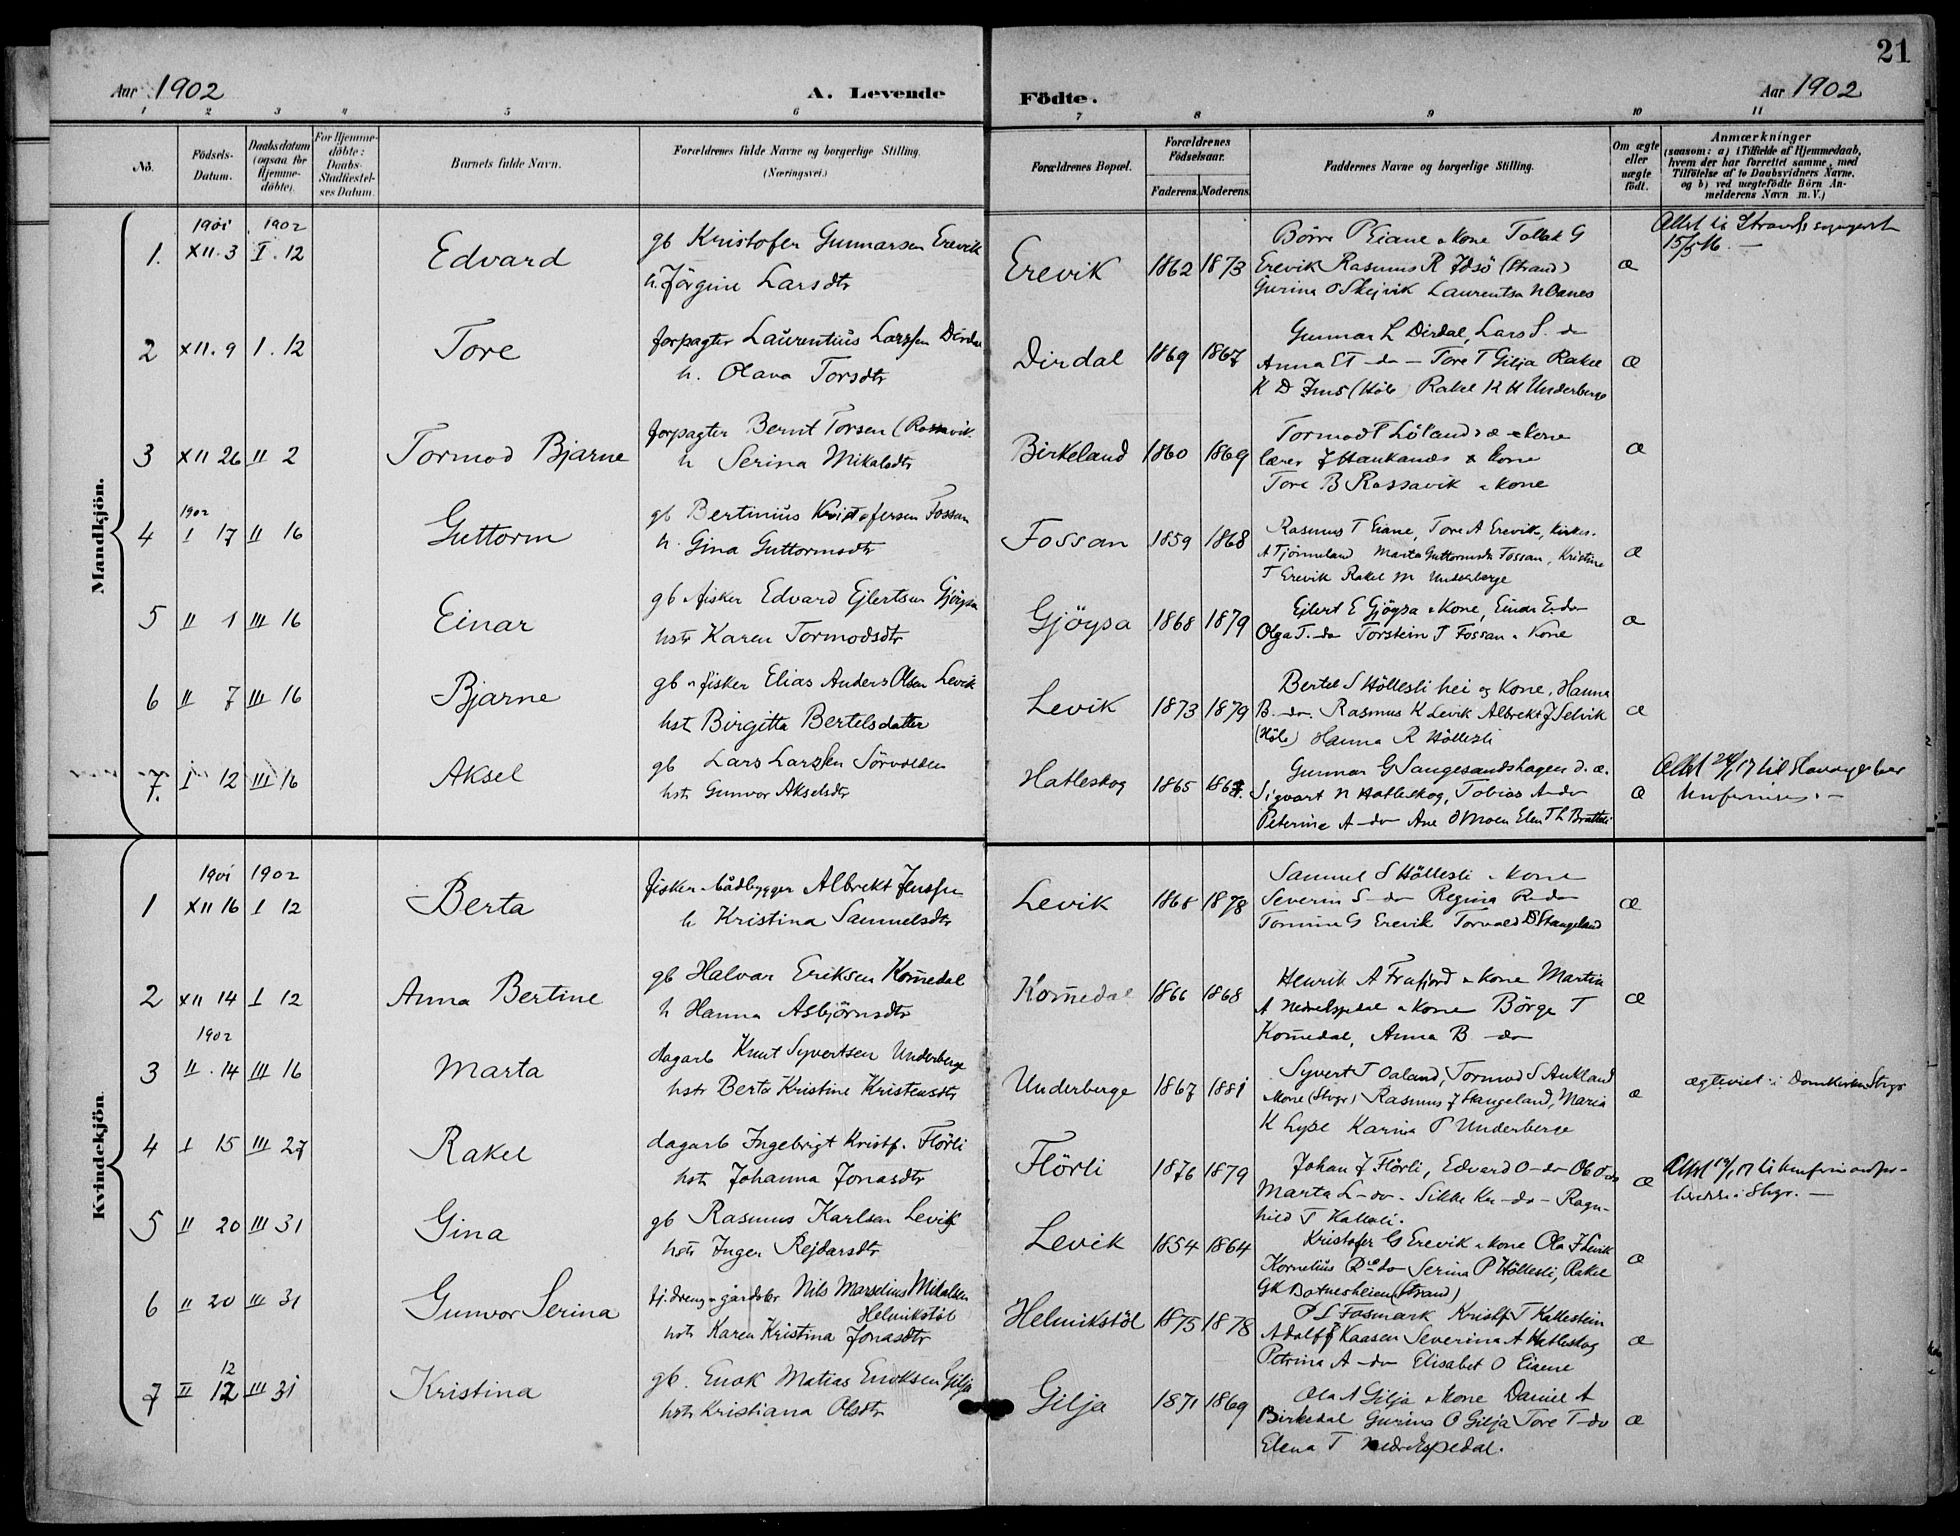 21
Aar 1902 A. Levende Födte. Aar 1902
1 2 3 4 5 6 7 8 9 10 11
No. Födsels-Datum. Daabsdatum (ogsaa for Hjemme-döbte). For Hjemme-döbte: Daabs-Stadfæstel-ses Datum. Barnets fulde Navn. Forældrenes fulde Navne og borgerlige Stilling. (Næringsvei.) Forældrenes Bopæl. Forældrenes Födselsaar. Faderens. Moderens. Faddernes Navne og borgerlige Stilling. Om ægte eller uægte födt. Anmærkninger (saasom: a) i Tilfælde af Hjemmedaab, hvem der har forrettet samme, med Tilföielse af to Daabsvidners Navne, og b) ved uægtefödte Börn An-melderens Navn m. V.)
Mandkjön.
1901 1902
1. XII. 3 I. 12 Edvard gb Kristofer Gunnarsen Erevik
h. Jörgine Larsdtr
Erevik 1862 1873 Börre P Eiane & Kone Tollak G
Erevik Rasmus R Idsö (Strand)
Gurina O Skejvik Laurentsa
æ 15/5 16.
2 XII. 9 I. 12 Tore forpagter Laurentius Larssen Dirdal
h. Olava Torsdtr
Dirdal 1869 1867 Gunnar L Dirdal, Lars S. do
Anna ET do - Tore T Gilja Rakel
K D Ims (Höle) Rakel K H Underberge
æ
3 XII 26 II 2 Tormod Bjarne forpagter Bernt Torsen (Rossavik.
h Serina Mikalsdtr
Birkeland 1860 1869 Tormod T Löland d. æ & Kone
lærer J Haukanæs & Kone
Tore B Rossavik & Kone
æ
1902
4 I 17 II 16 Guttorm gb Bertinius Kristofersen Fossan
h. Gina Guttormsdtr
Fossan 1859 1868 Rasmus T Eiane, Tore A Erevik,
A Tjörneland Marta Guttormsdtr Fossan, Kristine
T Erevik Rakel M Underberge
æ
5 II 1 III 16 Einar gb & fisker Edvard Ejlertsen Gjöysa
hstr Karen Tormodsdtr
Gjöysa 1868 1879 Ejlert E Gjöysa & Kone, Einar E. do
Olga T. do Torstein T Fossan & Kone
æ
6 II 7 III 16 Bjarne gb & fisker Elias Anders Olsen Levik
hst Birgitta Bertelsdatter
Levik 1873 1879 Bertel S Höllesli hei og Kone, Hanna
B. do. Rasmus K Levik Albrekt J Selvik
(Höle) Hanna R Höllesli
æ
7. I 12 III 16 Aksel gb Lars Larssen Sörvolden
hstr Gunvor Akselsdtr
Hatleskog 1865 Gunnar G Songesandshagen d. æ.
Sigvart N Hatleskog, Tobias A do
Peterine A do Ane O Moen Elen Th Bratteli
æ
Kvindekjön.
1901 1902
1 XII 16 I 12 Berta fisker & bådbygger Albrekt Jenssen
h Kristina Samuelsdtr
Levik 1865 1878 Samuel S Höllesli & Kone
Severin S do Regina R do
Tomine G Erevik Torvald D Stangeland
æ
2 XII 14 I 12 Anna Bertine gb Halvar Eriksen Kom̄edal
h Hanna Asbjörnsdtr
Kom̄edal 1866 1868 Henrik A Frafjord & Kone Martin
A Nedrespedal & Kone Börge T
Kom̄edal, Anna B do
æ
1902
3 II. 14 III 16 Marta dagarb Knut Syvertsen Underberge
hstr Berta Kristine Kristensdtr
Underberge 1867 1881 Syvert T Oaland, Tormod S Aukland
& Kone (Stvgr) Rasmus J Stangeland, Maria
K Lyse Karina P Underberge
æ ægteviet i Domkirken Stvgr
4 I 15 III 27 Rakel dagarb Ingebrigt Kristf. Flörli
hstr Johanna Jonasdtr
Flörli 1876 1879 Johan J Flörli, Edvard O do Ole O do
Marta L do. Sikke Kn do - Ragn-
hild T Kalleli.
æ
5 II 20 III 31 Gina gb Rasmus Karlsen Levik
hstr Inger Rejdarsdtr
Levik 1854 1864 Kristofer G Erevik & Kone Ola J Levik
Kornelius R do Serina P Höllesli, Rakel
GK Botnesheien (Strand)
æ
6 II 20 III 31 Gunvor Serina tj. dreng & gårdsbr Nils Marselius Mikalsen
Helmikstöl
hstr Karen Kristina Jonasdtr
Helmikstöl 1875 1878 P L Fosmark Kristf T Kallestein
Adolf J Kaasen Severina A Hatleskog
Petrina A do Elisabet O Eiane
æ
12
7 II 12 III 31 Kristina gb. Enok Matias Enoksen Gilja
hstr Kristiana Olsdtr
Gilja 1871 1869 Ola A Gilja & Kone Daniel A
Birkedal Gurina O Gilja Tore T do
Elena T Nedrespedal.
æ